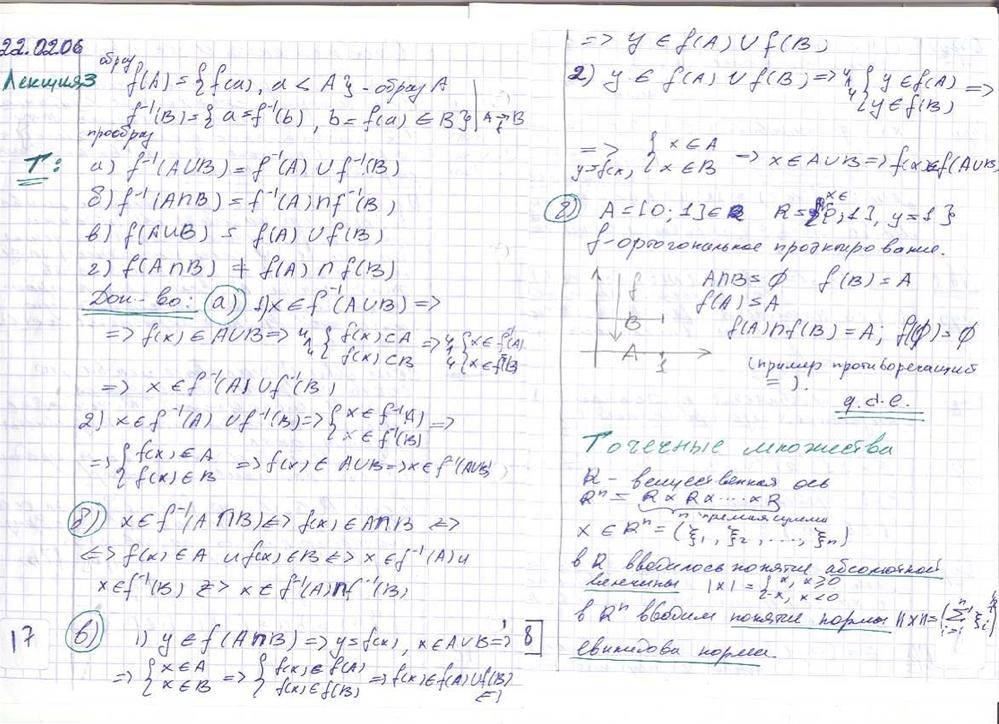 22.0206
образ
Лекция3
f(A) = {f(a), a ∈ A} - образ A
f⁻¹(B) = { a = f⁻¹(b), b = f(a) ∈ B} | A → B
f
прообраз
Т:
а) f⁻¹(A∪B) = f⁻¹(A) ∪ f⁻¹(B)
б) f⁻¹(A∩B) = f⁻¹(A) ∩ f⁻¹(B)
в) f(A∪B) = f(A) ∪ f(B)
г) f(A∩B) ≠ f(A) ∩ f(B)
Док-во: а) 1) x ∈ f⁻¹(A∪B) =>
=> f(x) ∈ A∪B => { f(x) ⊂ A
f(x) ⊂ B => { x ∈ f⁻¹(A)
x ∈ f⁻¹(B)
=> x ∈ f⁻¹(A) ∪ f⁻¹(B)
2) x ∈ f⁻¹(A) ∪ f⁻¹(B) => { x ∈ f⁻¹(A)
x ∈ f⁻¹(B) =>
=> { f(x) ∈ A
f(x) ∈ B => f(x) ∈ A∪B => x ∈ f⁻¹(A∪B)
б) x ∈ f⁻¹(A∩B) <=> f(x) ∈ A∩B <=>
<=> f(x) ∈ A и f(x) ∈ B <=> x ∈ f⁻¹(A) и
x ∈ f⁻¹(B) <=> x ∈ f⁻¹(A) ∩ f⁻¹(B)
17
в) 1) y ∈ f(A∩B) => y = f(x), x ∈ A∪B =>
8
=> { x ∈ A
x ∈ B => { f(x) ∈ f(A)
f(x) ∈ f(B) => f(x) ∈ f(A) ∪ f(B)
=>
=> y ∈ f(A) ∪ f(B)
2) y ∈ f(A) ∪ f(B) => { y ∈ f(A)
y ∈ f(B) =>
=>
y=f(x) { x ∈ A
x ∈ B => x ∈ A∪B => f(x) ∈ f(A∪B)
г) A = [0; 1] ∈ R
x ∈ [0, 1], y = 1}
f - ортогональное проектирование.
f
B
A
1
A∩B = ∅ f(B) = A
f(A) = A
f(A) ∩ f(B) = A; f(∅) = ∅
(пример противоречащий
= ).
q.d.e.
Точечные множества
R - вещественная ось
Rⁿ = R × R × ... × R
n прямая сумма
x ∈ Rⁿ = (ξ₁, ξ₂, ..., ξn)
в R вводилось понятие абсолютной
величины |x| = { x, x ≥ 0
-x, x < 0
в Rⁿ вводим понятие нормы ||x|| =
евклидова норма.